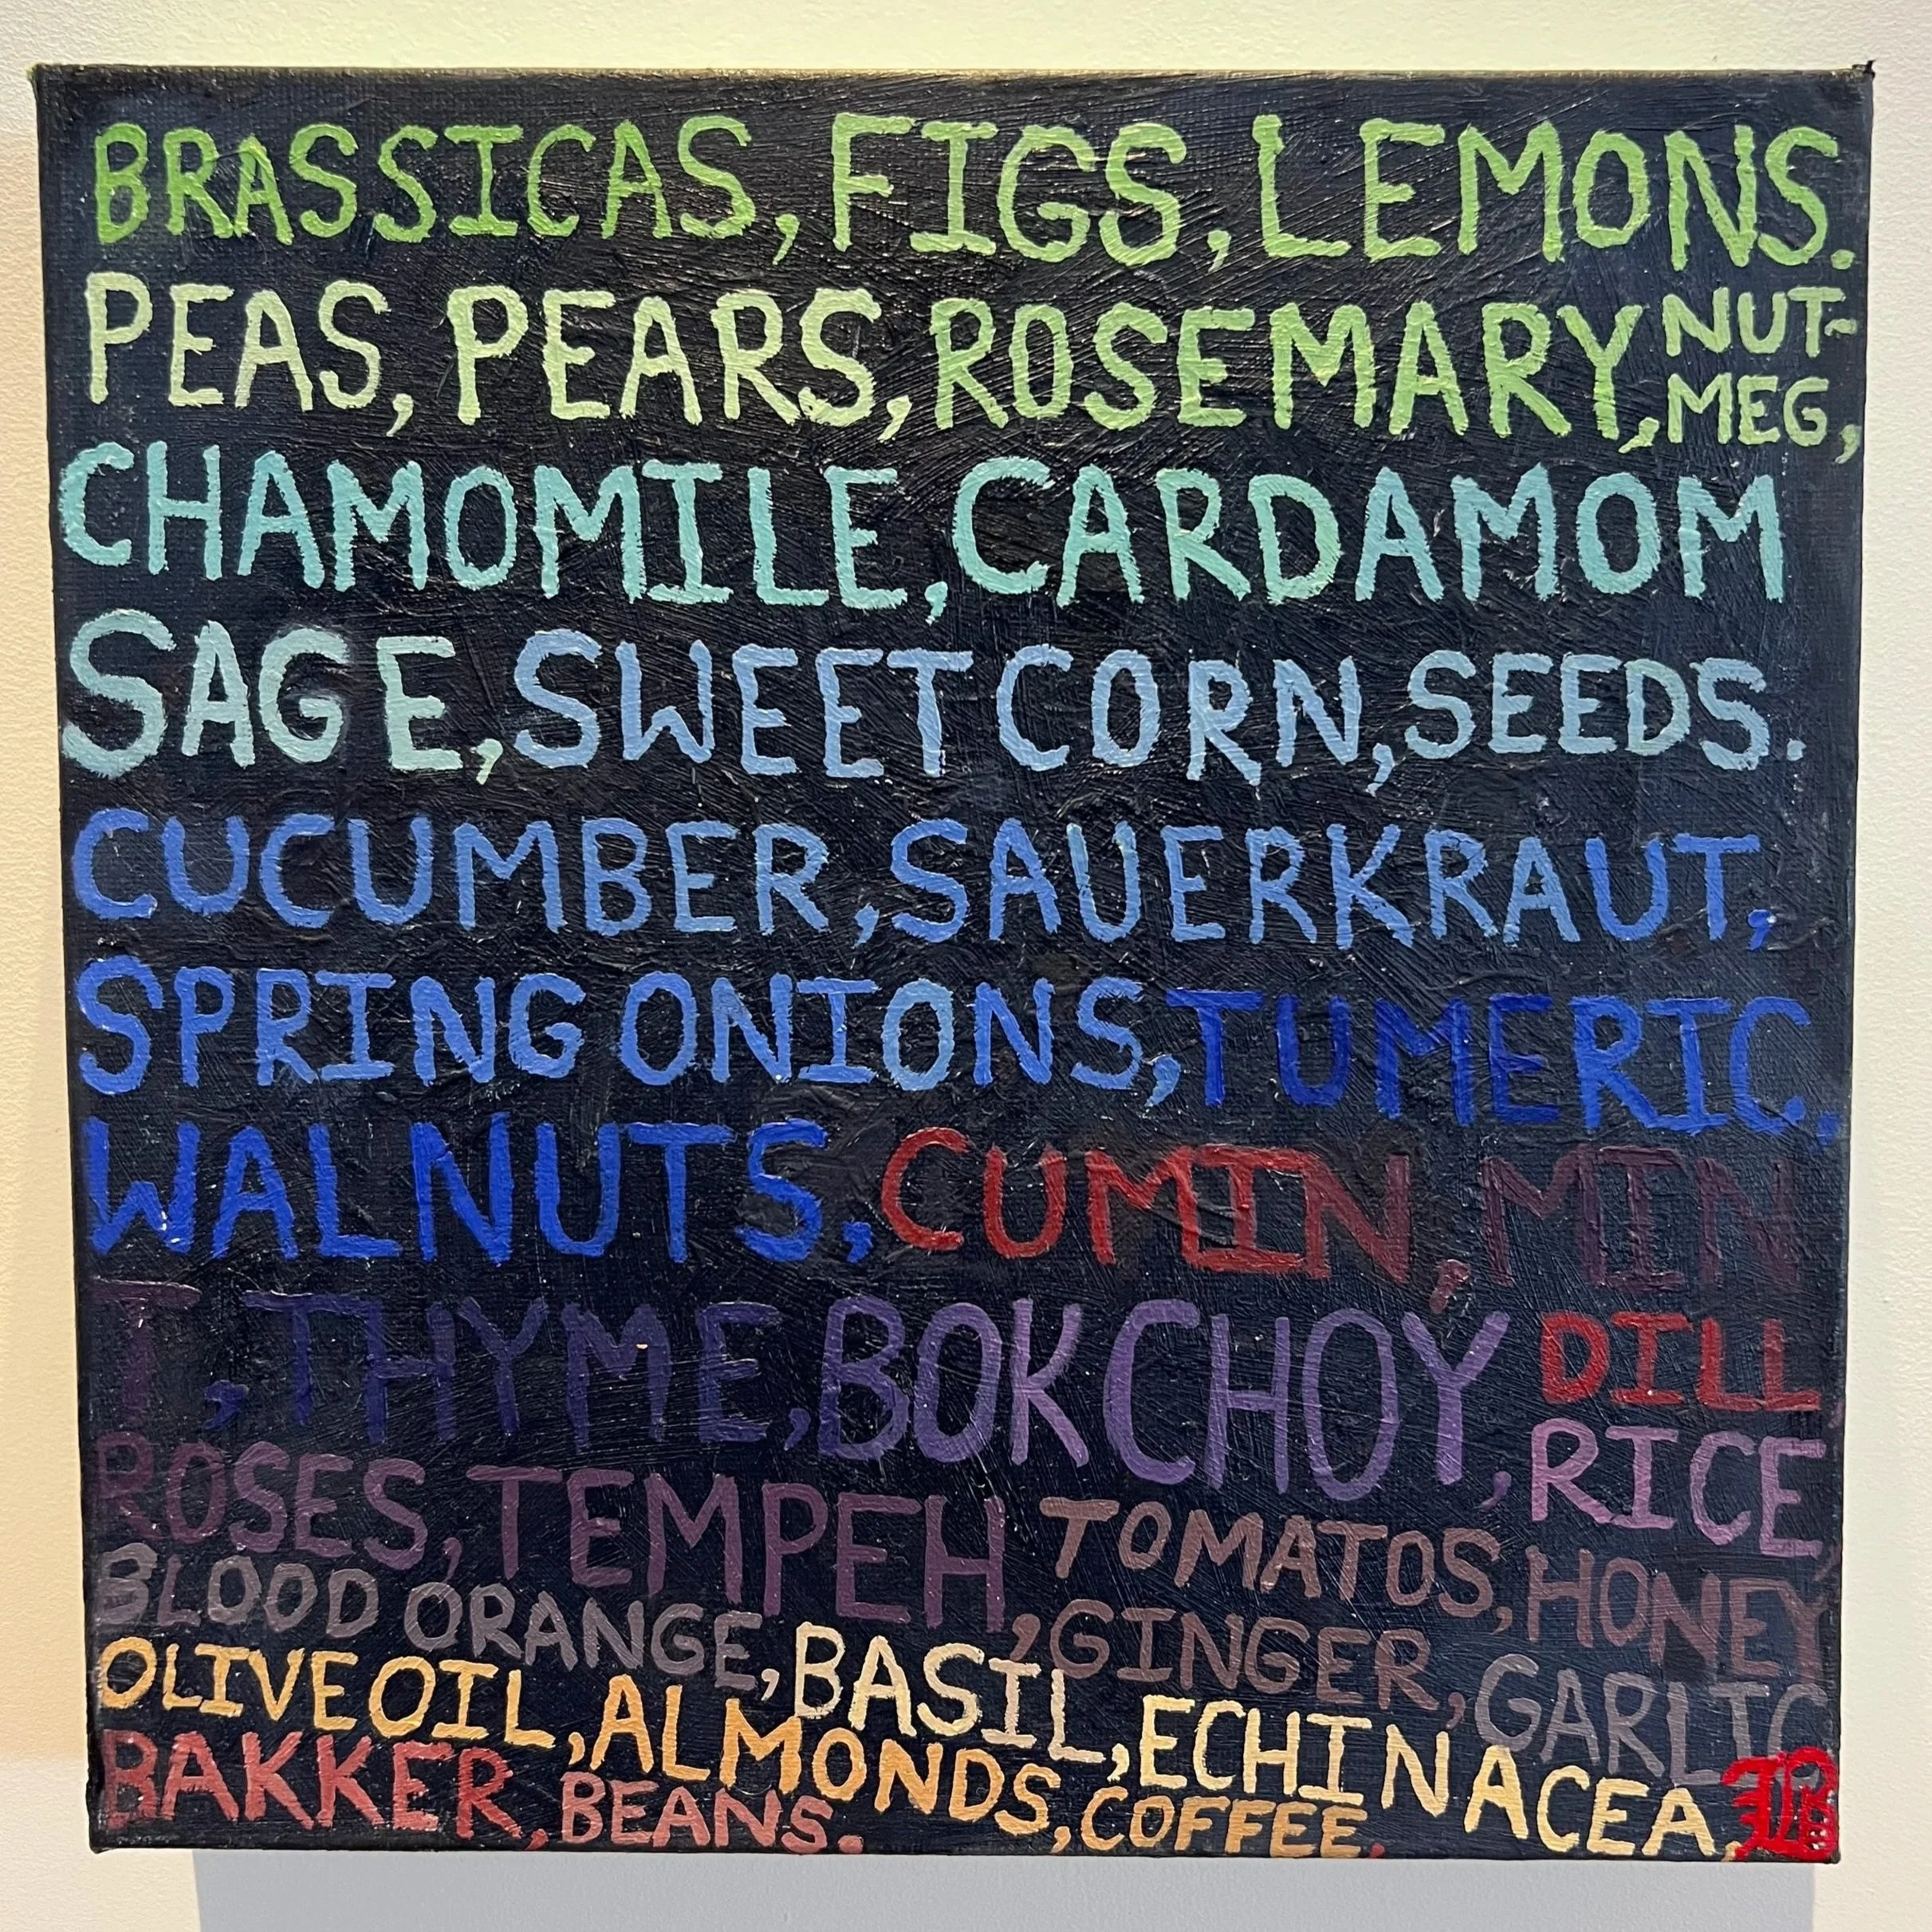 BRASSICAS, FIGS, LEMONS.
PEAS, PEARS, ROSEMARY, NUT-
MEG,
CHAMOMILE, CARDAMOM
SAGE, SWEET CORN, SEEDS.
CUCUMBER, SAUERKRAUT,
SPRING ONIONS, TUMERIC,
WALNUTS, CUMIN, MIN
T, THYME, BOK CHOY, DILL
RICE,
ROSES, TEMPEH, TOMATOS, HONEY
BLOOD ORANGE, BASIL, GINGER, GARLIC
OLIVE OIL, ALMONDS, ECHINACEA,
BAKKER, BEANS. COFFEE.